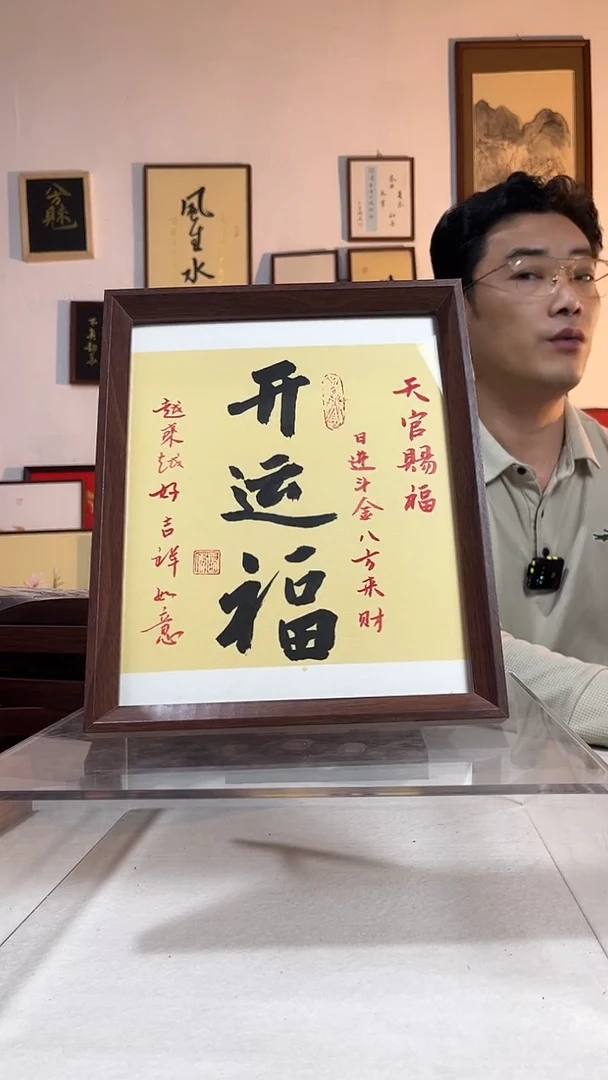 天官赐福
日进斗金八方来财
开运福
越来越好吉祥如意
風生水